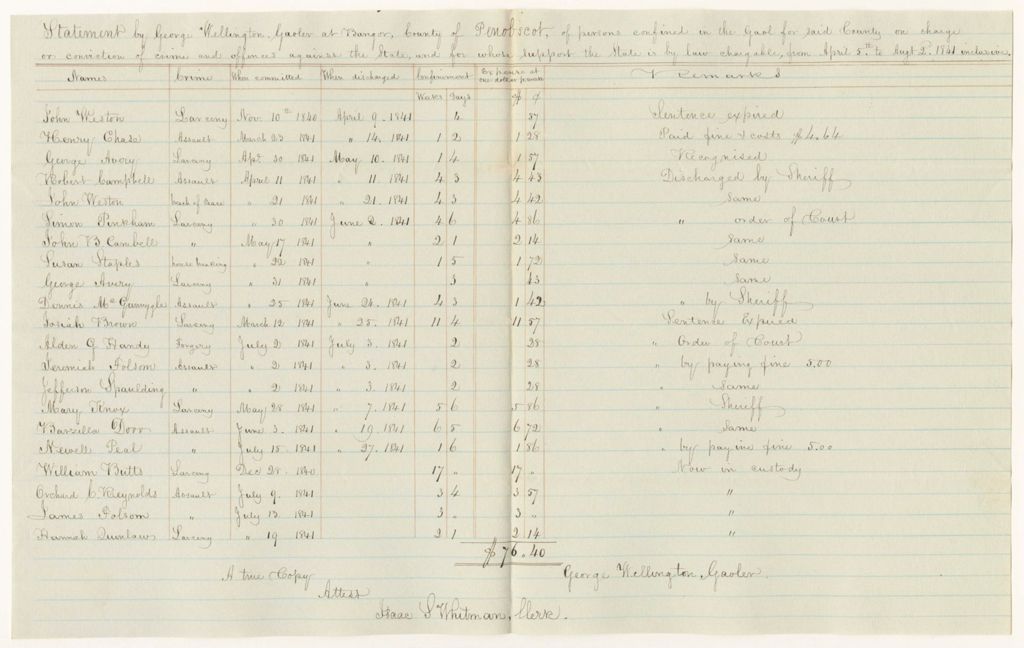 Statement by George Wellington, Gaoler at Bangor, County of Penobscot, of persons confined in the Gaol for said County on charge
or conviction of crime and offences against the State, and for whose support the State is by law chargable, from April 5th to Augt 2. 1841 inclusive.
Names Crime When committed When discharged Confinement Expense at one dollar pr week Remarks
Weeks Days $ ¢
John Weston Larceny Nov. 10th 1840 April 9. 1841 4 57 Sentence expired
Henry Chase Assault March 23 1841 " 14. 1841 1 2 1 28 Paid fine & costs $4.64
George Avery Larceny Apl. 30 1841 May 10. 1841 1 4 1 57 Recognised
Robert Campbell Assault April 11 1841 " 11. 1841 4 3 4 43 Discharged by Sheriff
John Weston " 21 1841 " 21. 1841 4 3 4 42 Same
Simon Pinkham Larceny " 30 1841 June 2. 1841 4 6 4 86 " order of Court
John B Cambell " May 17 1841 " 2 1 2 14 Same
Susan Staples house breaking " 22 1841 " 1 5 1 72 Same
George Avery Larceny " 31 1841 " 3 43 Same
Dennis Assault " 25 1841 June 24. 1841 4 3 42 " by Sheriff
Josiah Brown Larceny March 12 1841 " 25. 1841 11 4 11 57 Sentence Expired
Alden G Handy Forgery July 2 1841 July 3. 1841 2 28 " Order of Court
Jeremiah Folsom Assault " 2 1841 " 3. 1841 2 28 " by paying fine 5.00
Jefferson Spaulding " " 2 1841 " 3. 1841 2 28 " Same
Mary Knox Larceny May 28 1841 " 7. 1841 5 6 5 86 " Sheriff
Barzilla Dorr Assault June 3. 1841 " 19. 1841 6 5 6 72 " Same
Newell Peal " July 15. 1841 " 27. 1841 1 6 1 86 " by payin fine 5.00
William Butts Larceny Dec 28. 1840 17 " 17 " Now in custody
Orchard C. Reynolds Assault July 9. 1841 3 4 3 57 "
James Folsom " July 13. 1841 3 " 3 " "
Hannah Larceny " 19 1841 2 1 2 14 "
$76.40
A true Copy George Wellington, Gaoler.
Attest
Isaac S Whitman, Clerk.